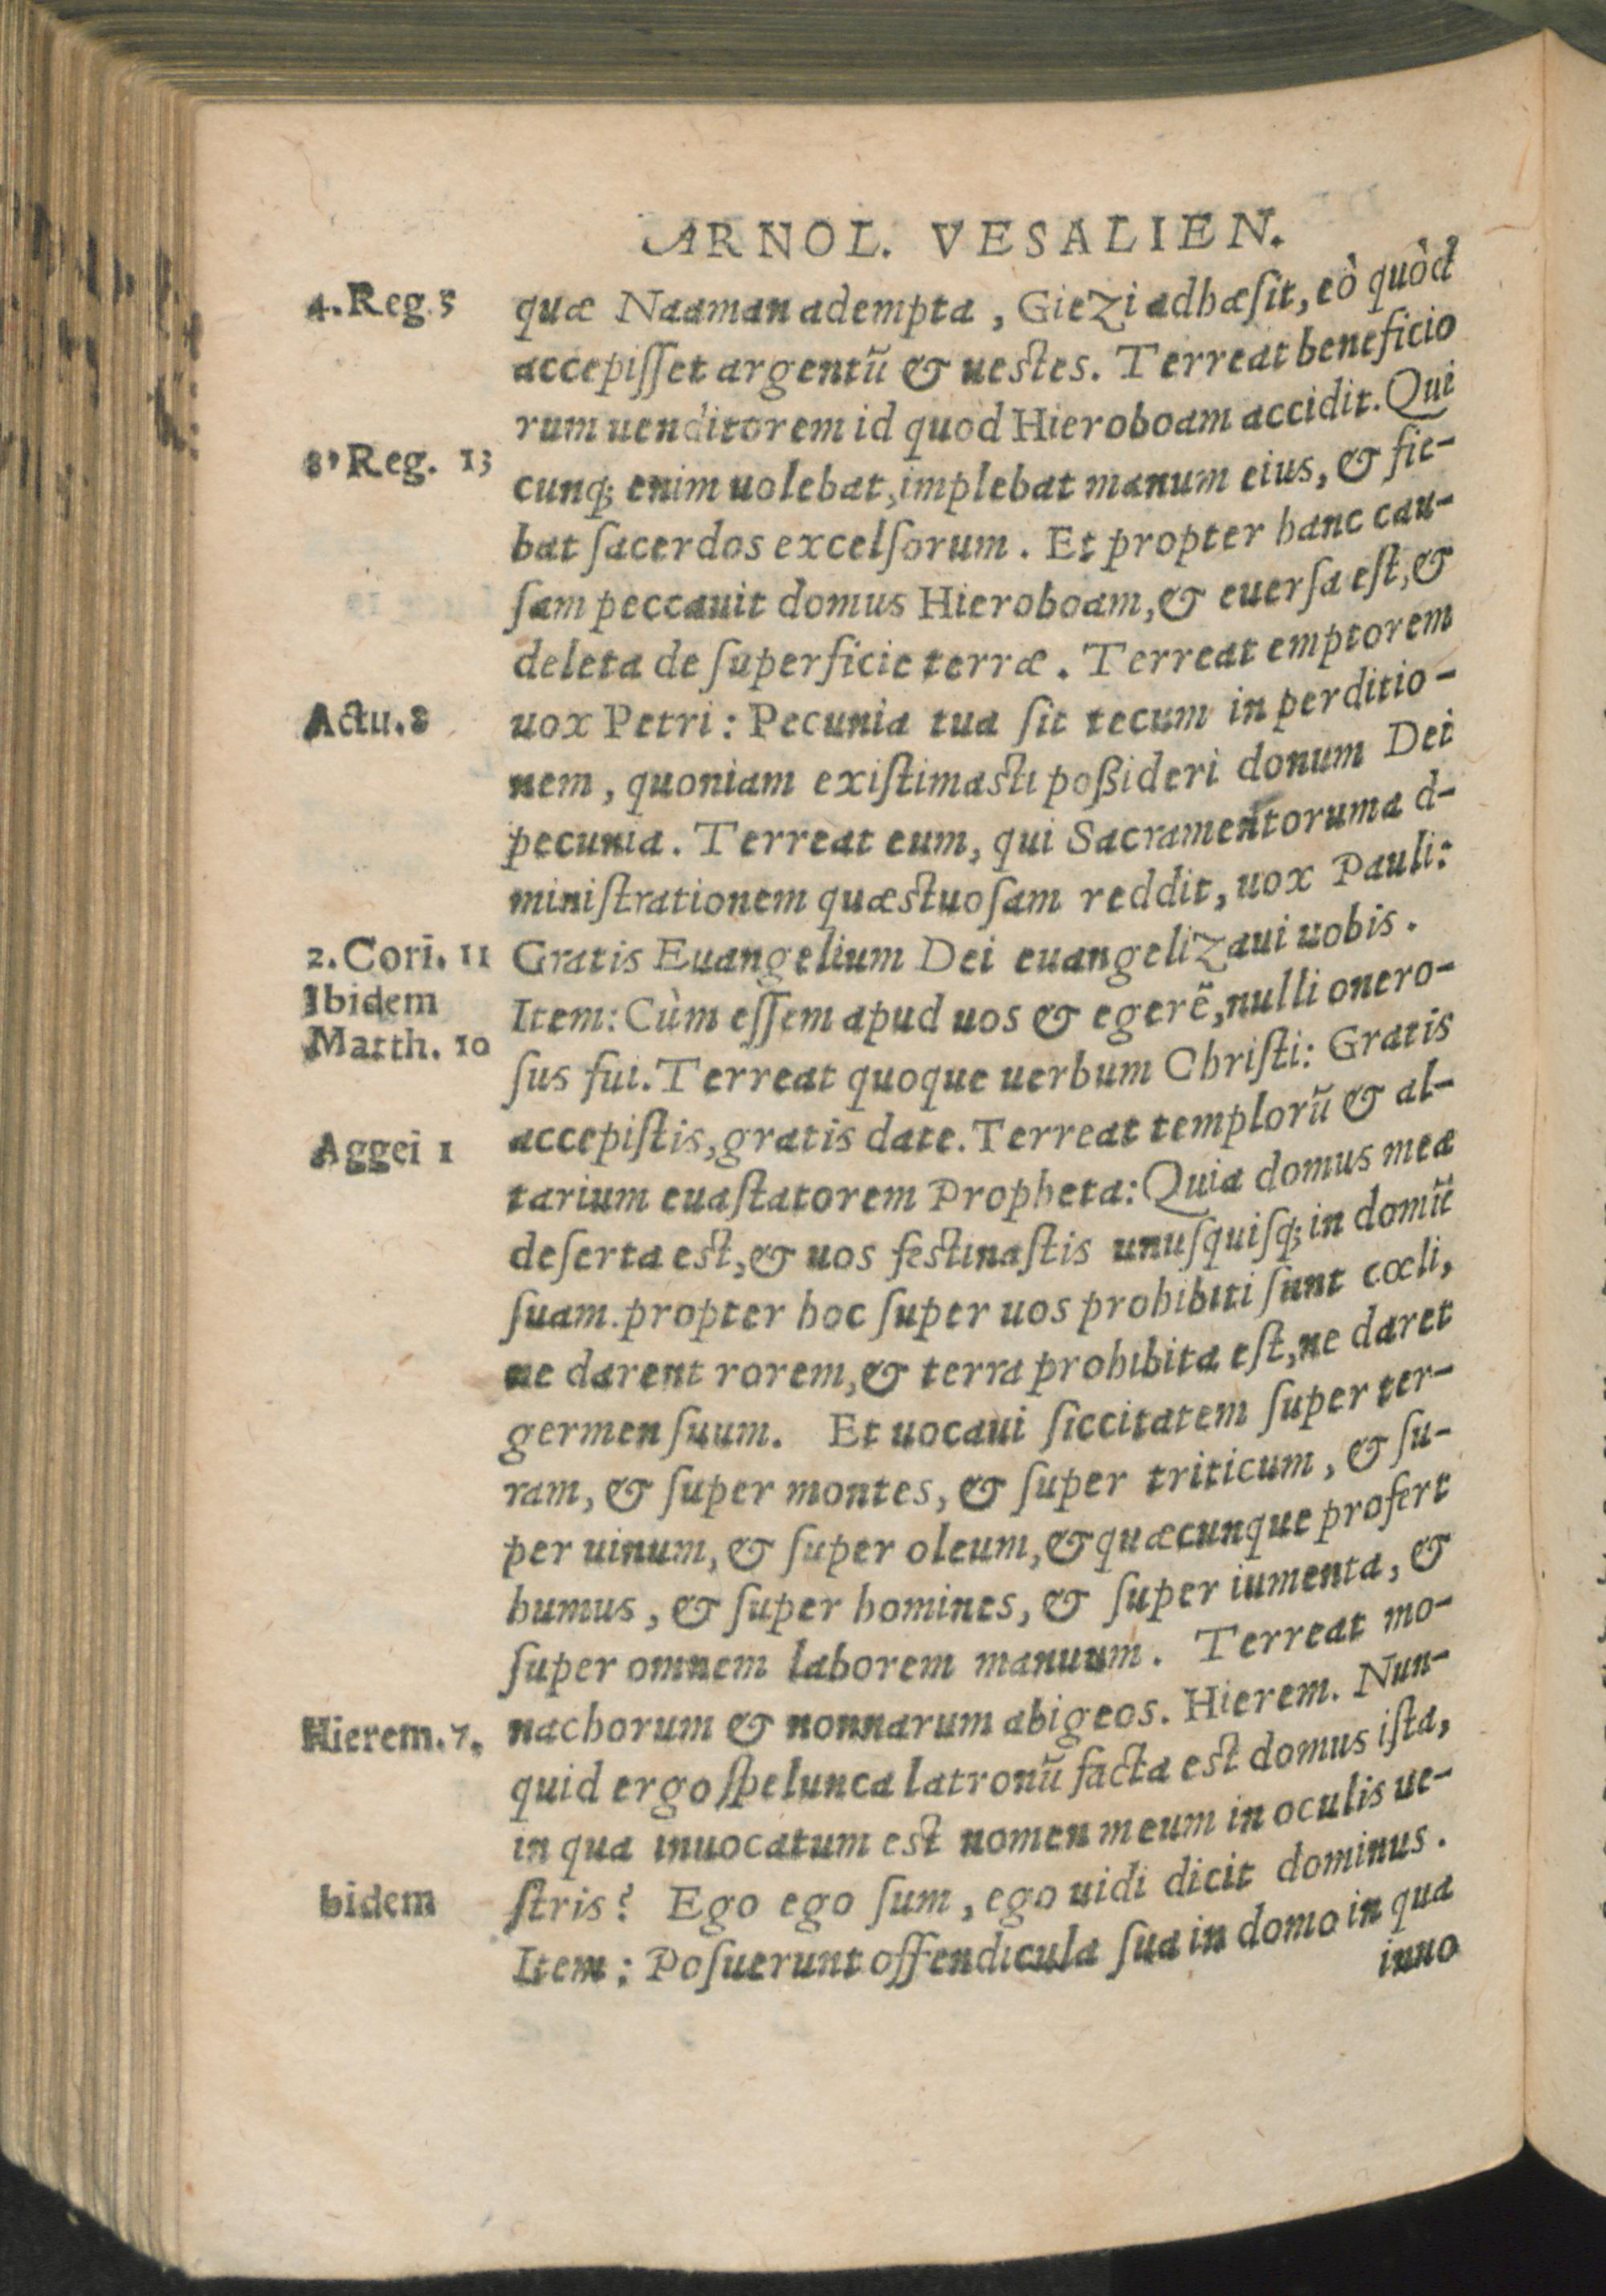 ARNOL. VESALIEN.
4. Reg. 5
quæ Naaman adempta, Giezi adhæſit, eò quòd
accepiſſet argentũ & ueſtes. Terreat beneficio
rum uenditorem id quod Hieroboam accidit. Qui
8' Reg. 13
cunq; enim uolebat, implebat manum eius, & fie-
bat ſacerdos excelſorum. Et propter hanc cau-
ſam peccauit domus Hieroboam, & euerſa eſt, &
deleta de ſuperficie terræ. Terreat emptorem
Actu. 8
uox Petri: Pecunia tua ſit tecum in perditio-
nem, quoniam exiſtimaſti poßideri donum Dei
pecunia. Terreat eum, qui Sacramentoruma d-
miniſtrationem quæſtuoſam reddit, uox Pauli:
2. Cori. 11
Gratis Euangelium Dei euangelizaui uobis.
Ibidem
Item: Cùm eſſem apud uos & egerẽ, nulli onero-
Matth. 10
ſus fui. Terreat quoque uerbum Chriſti: Gratis
accepiſtis, gratis date. Terreat templorũ & al-
Aggei 1
tarium euaſtatorem Propheta: Quia domus mea
deſerta eſt, & uos feſtinaſtis unuſquiſq; in domũ
ſuam. propter hoc ſuper uos prohibiti ſunt cœli,
ne darent rorem, & terra prohibita eſt, ne daret
germen ſuum. Et uocaui ſiccitatem ſuper ter-
ram, & ſuper montes, & ſuper triticum, & ſu-
per uinum, & ſuper oleum, & quæcunque profert
humus, & ſuper homines, & ſuper iumenta, &
ſuper omnem laborem manuum. Terreat mo-
Hierem. 7.
nachorum & nonnarum abigeos. Hierem. Nun-
quid ergo ſpelunca latronũ facta eſt domus iſta,
in qua inuocatum eſt nomen meum in oculis ue-
ſtris? Ego ego ſum, ego uidi dicit dominus.
bidem
Item: Poſuerunt offendicula ſua in domo in qua
inuo